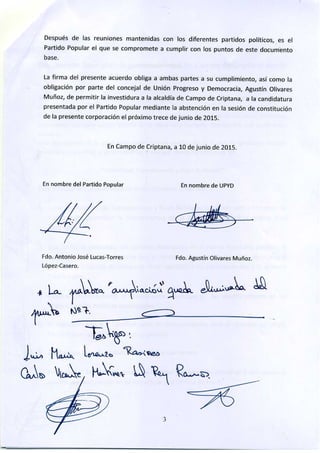 Después de las reuniones mantenidas con los diferentes partidos políticos, es el
Partido Popular el que se compromete a cumplir con los puntos de este documento
base.
La firma del presente acuerdo obliga a ambas partes a su cumplimiento, así como la
obligación por parte del concejal de Unión Progreso y Democracia, Agustín Olivares
Muñoz, de permitir la investidura a la alcaldía de Campo de Criptana, a la candidatura
presentada por el Partido Popular mediante la abstención en la sesión de constitución
de la presente corporación el próximo trece de junio de 2015.
En Campo de Criptana, a 10 de junio de 2015.
En nombre del Partido Popular
En nombre de UPYD
Fdo. Antonio José Lucas-Torres
López-Casero.
Fdo. Agustín Olivares Muñoz.
* La palabra "ampliación" queda eliminada del
punto Nº 7.
Testigos:
Luis María Lorenzo
Carlos Vicente Martínez del Rey Ramos
3